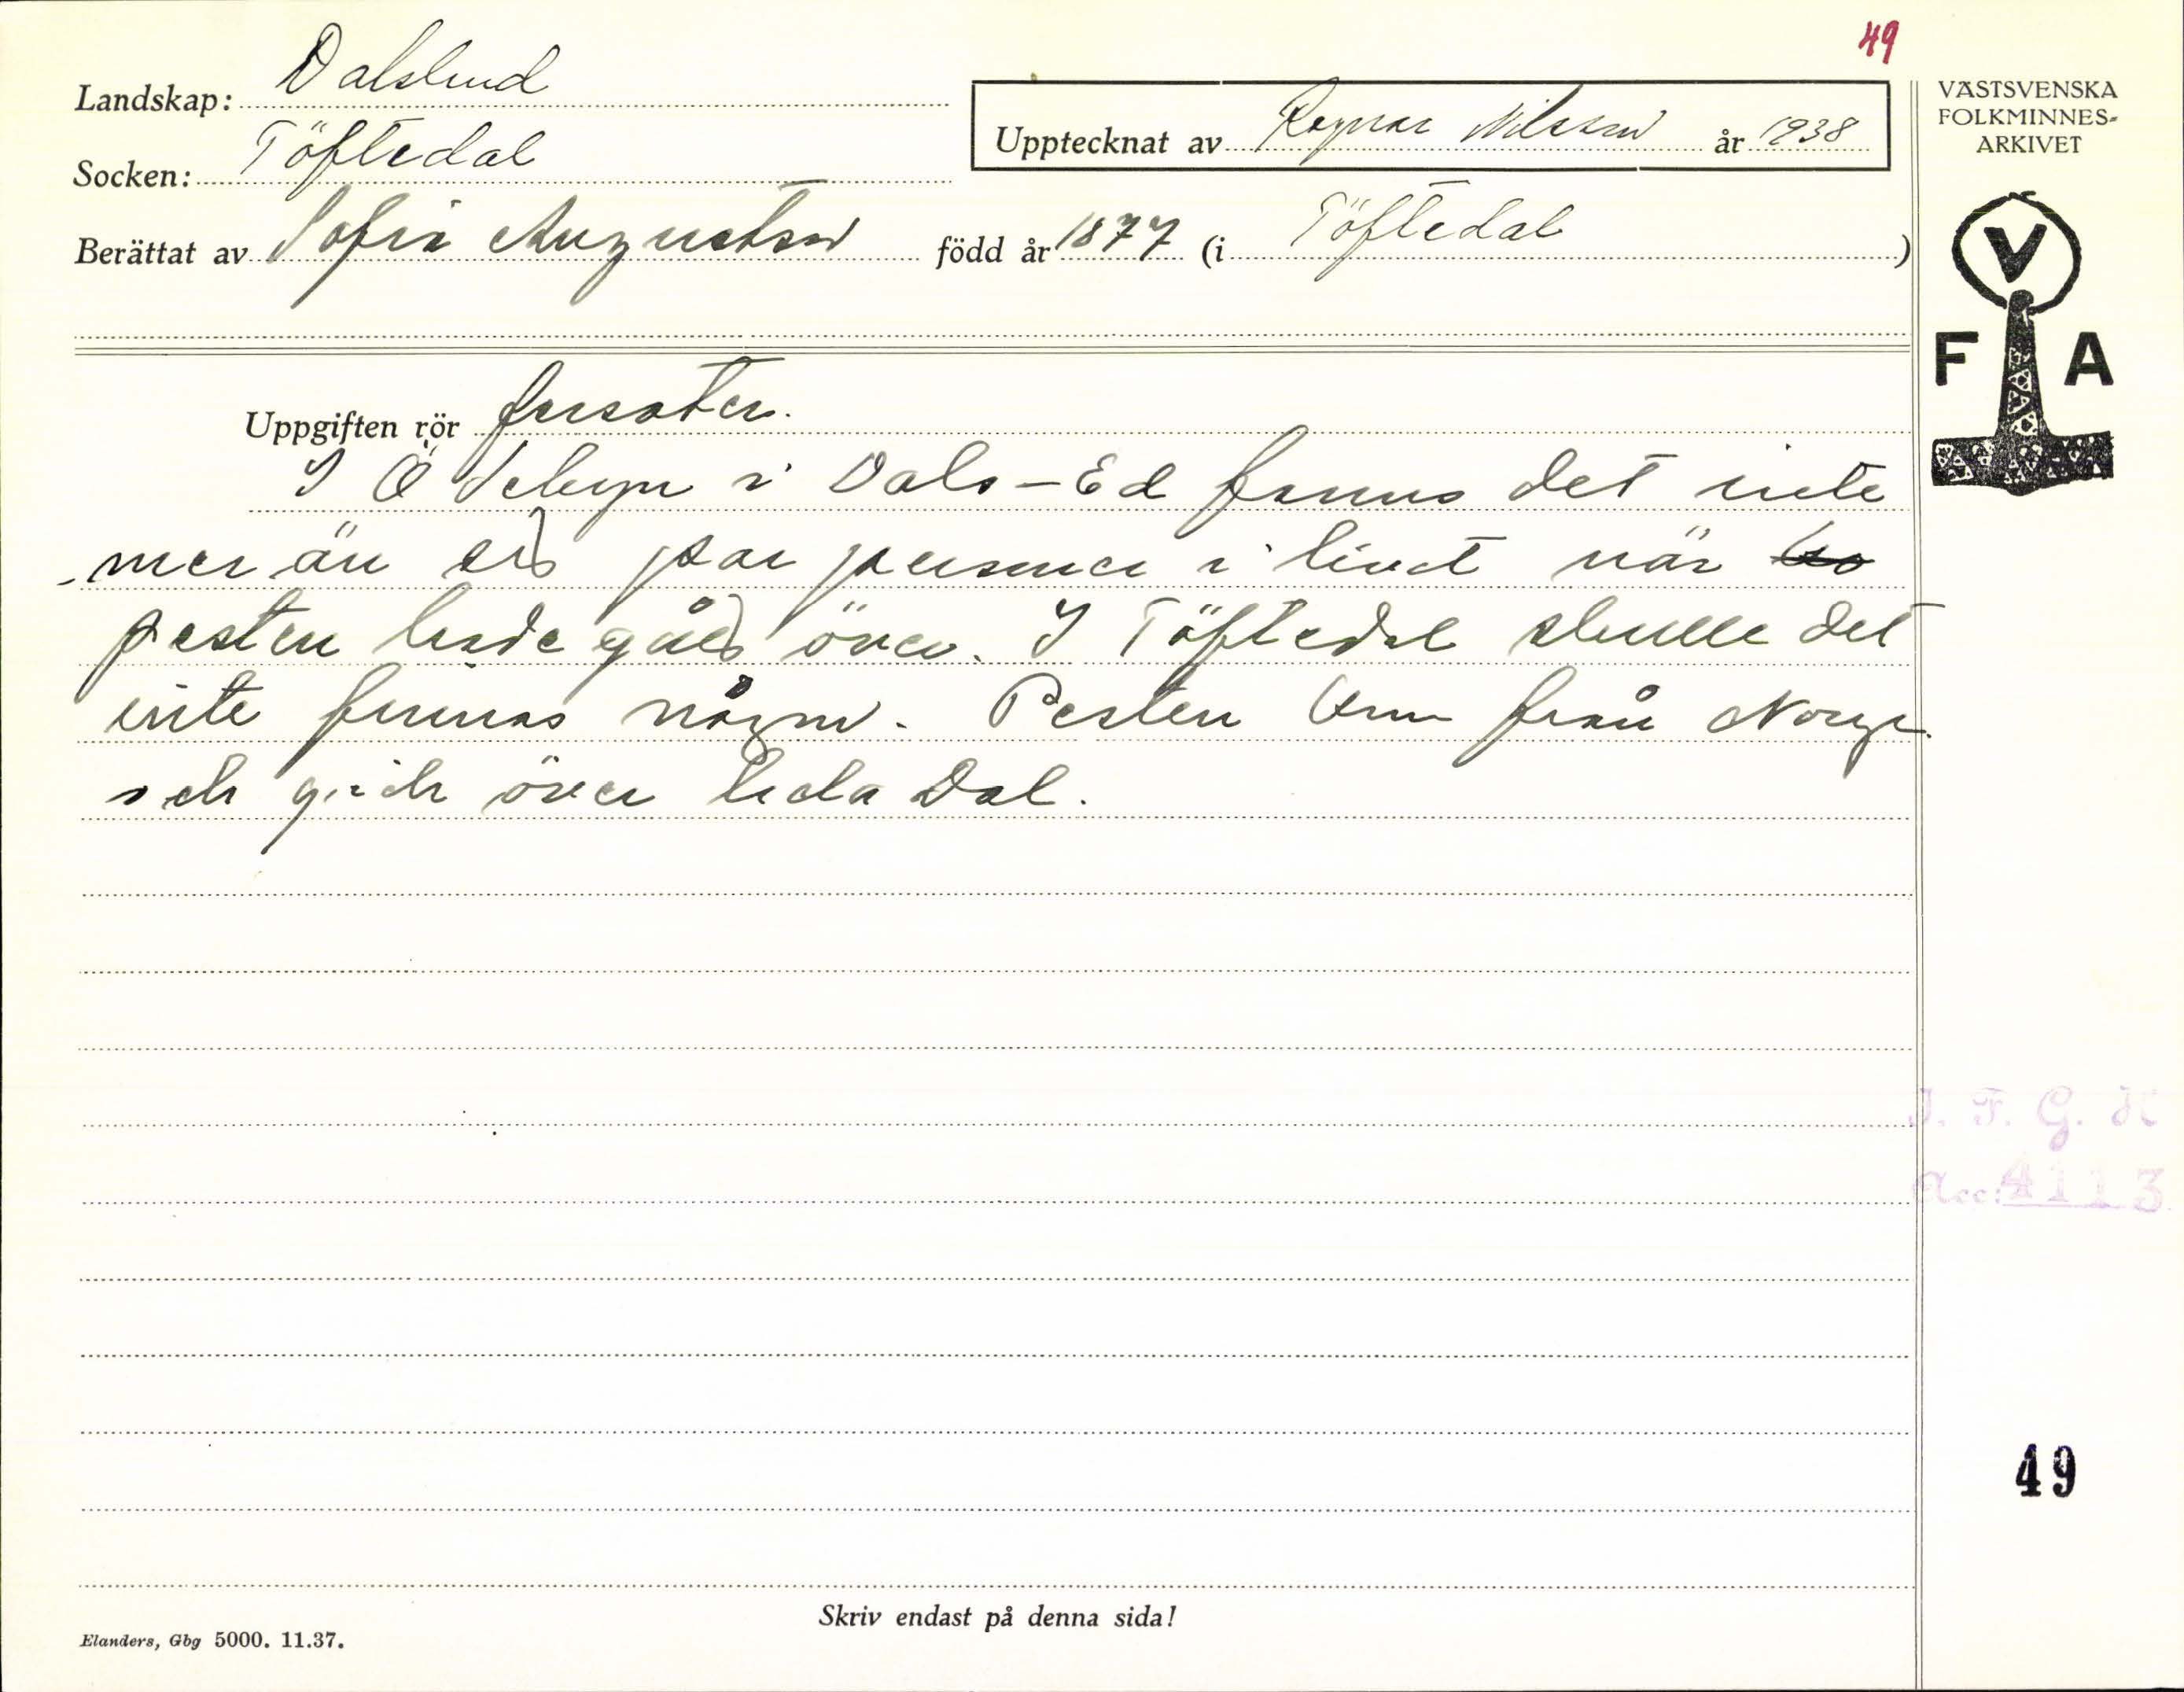 49
Landskap: Dalsland
Socken: Töftedal
Upptecknat av Ragnar Nilsson år 1938
Berättat av Sofia Augustsson född år 1877 (i Töftedal)
VÄSTSVENSKA
FOLKMINNES-
ARKIVET
V
F A
Uppgiften rör farsoter.
I Ödebyn i Dals-Ed fanns det inte
mer än ett par personer i livet när
pesten hade gått över. I Töftedal skulle det
inte finnas någon. Pesten kom från Norge
och gick över hela Dal.
I. F. G. H
Acc: 4113
49
Skriv endast på denna sida!
Elanders, Gbg 5000. 11.37.